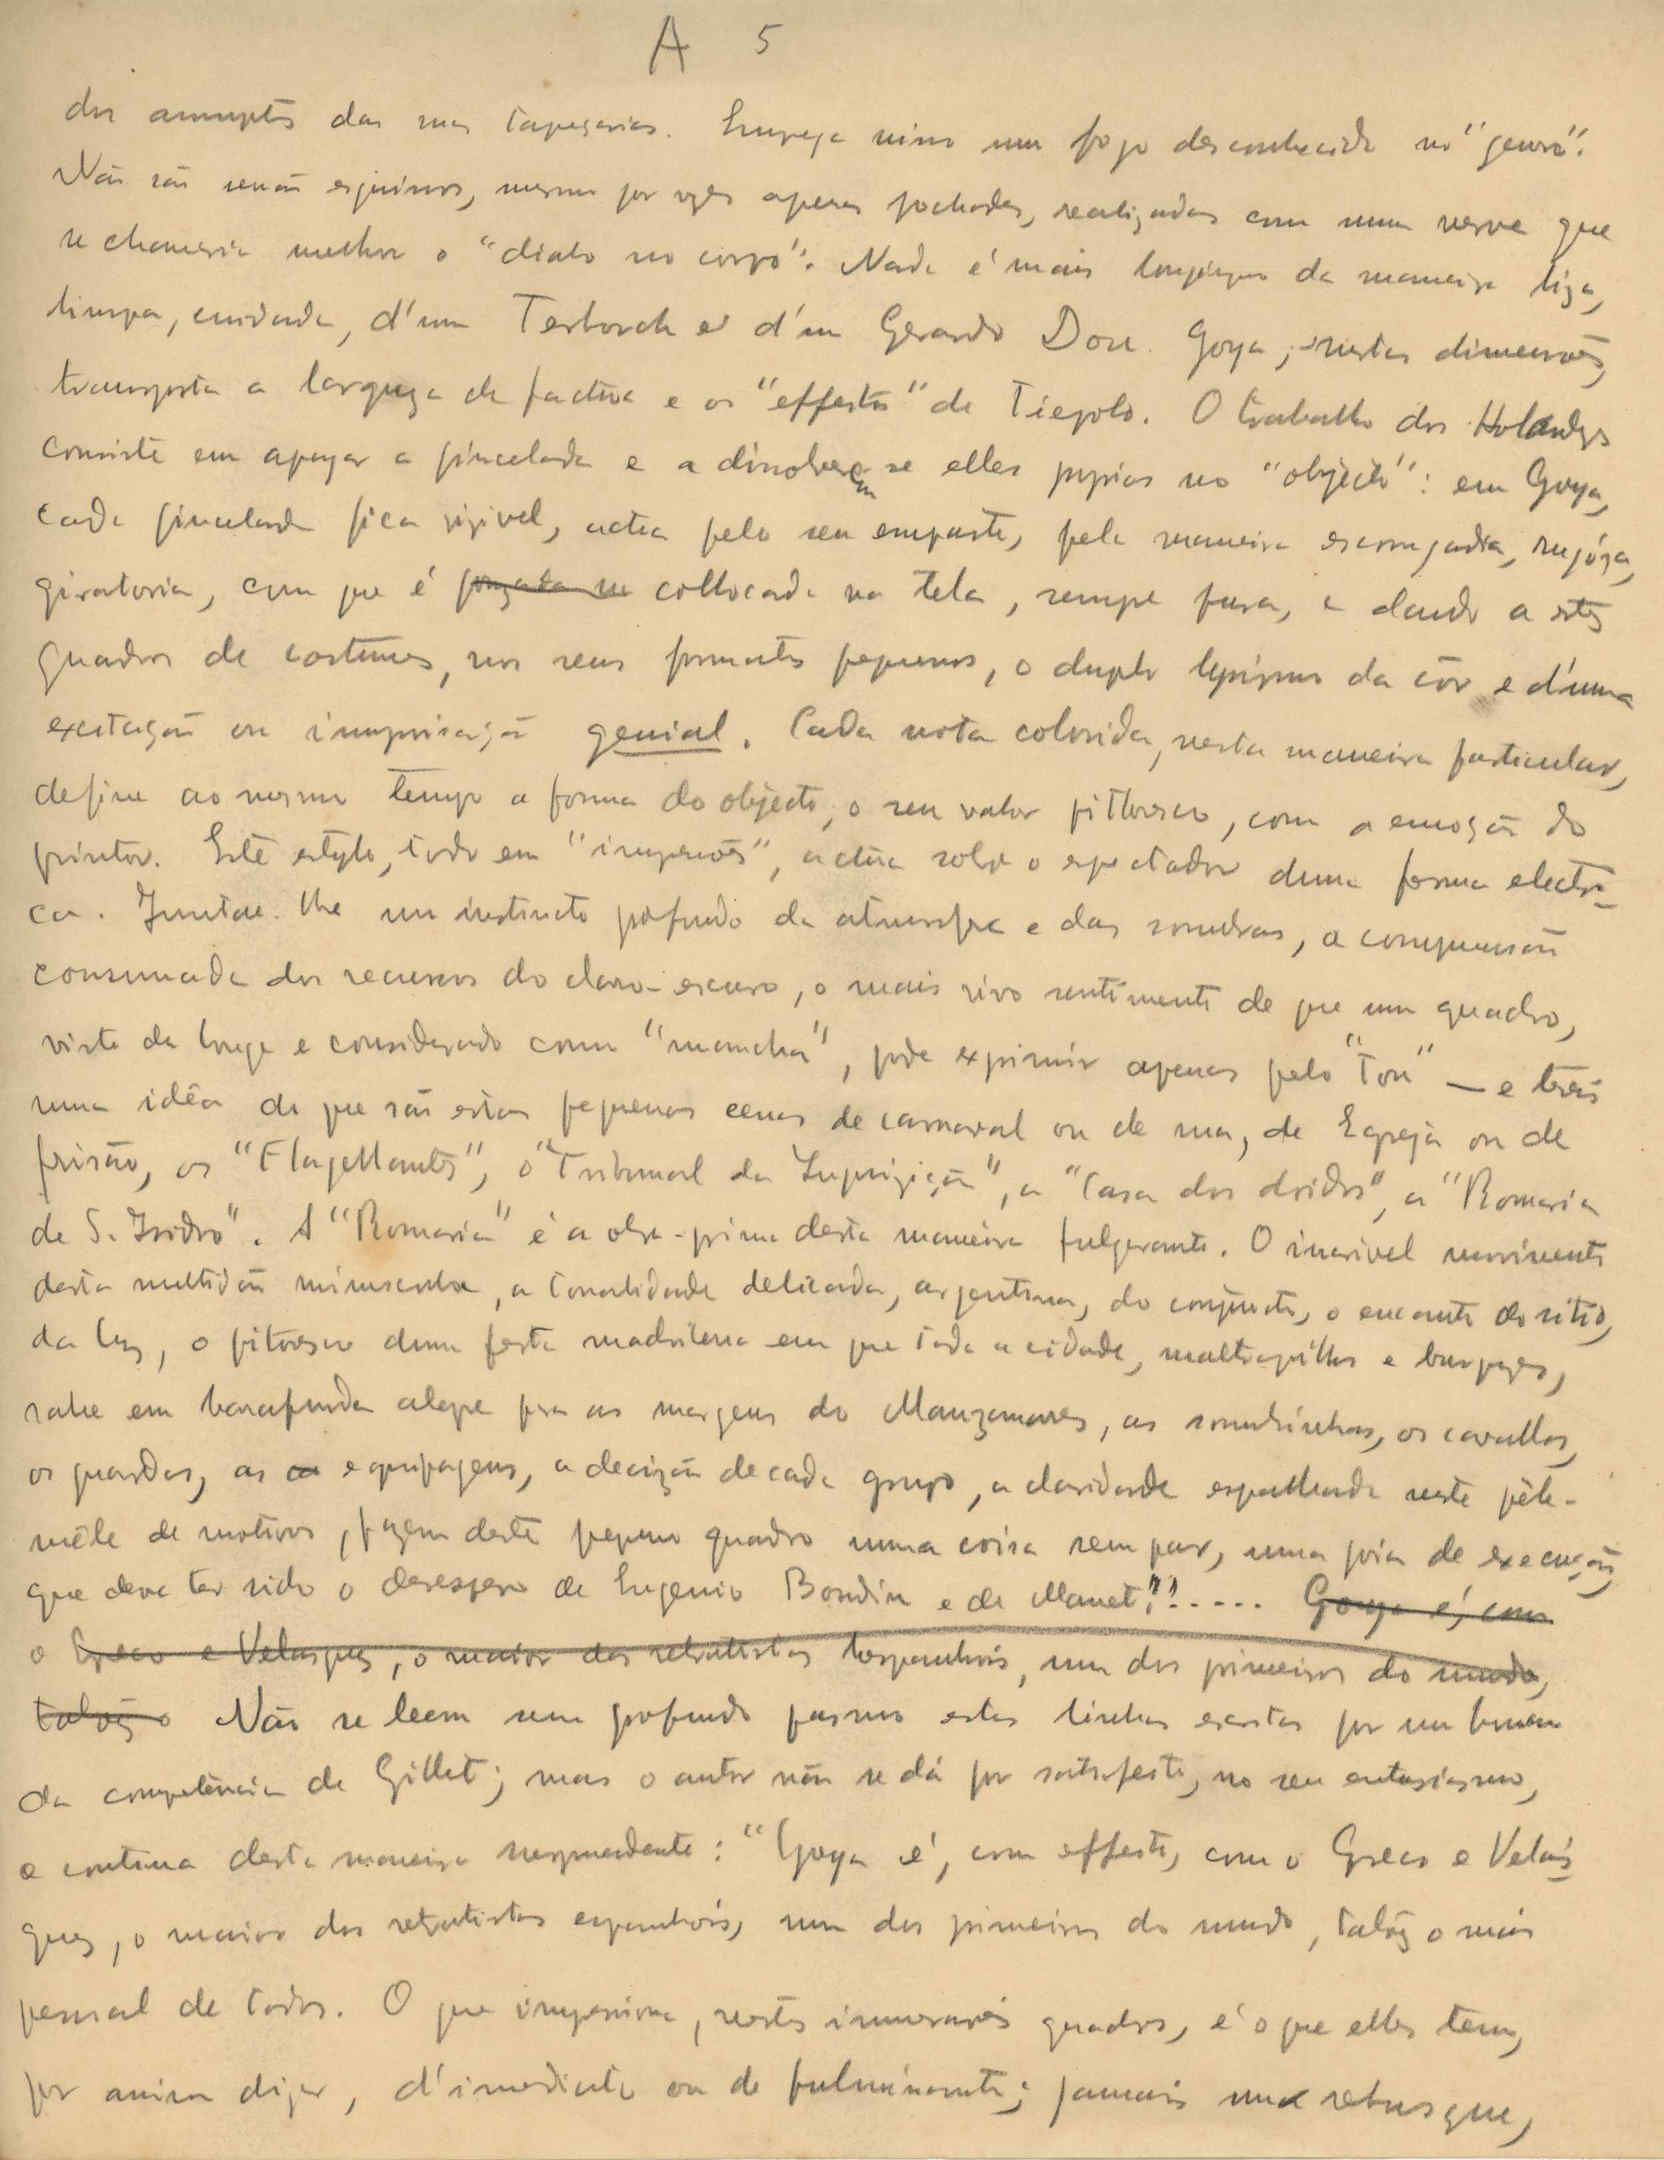 A 5
dos assumptos das suas tapeçarias. Emprega nisso um fogo desconhecido no "genro".
Não são senão esquissos, mesmo por vezes apenas pochades, realizadas com uma verve que
se chamaria melhor o "diabo no corpo". Nada é mais longinquo da maneira liza,
limpa, cuidada, d'um Terborch e d'um Gerardo Dou. Goya, nestas dimensões,
transporta a largueza de factura e os "effeitos" de Tiepolo. O trabalho dos Holandezes
consiste em apagar a pincelada e a dissolverem se elles proprios no "objecto": em Goya,
cada pincelada fica vizivel, actua pelo seu empaste, pela maneira escorregadia, rugóza,
giratoria, com que é collocada na tela, sempre pura, e dando a estes
quadros de costumes, nos seus formatos pequenos, o duplo lyrismo da côr e d'uma
excitação ou improvisação genial. Cada nota colorida, nesta maneira particular,
define ao mesmo tempo a forma do objecto, o seu valor pittoresco, com a emoção do
pintor. Este estylo, todo em "impressões", actua sobre o espectador duma forma electri-
ca. Juntae-lhe um instincto profundo da atmosfera e das sombras, a compreensão
consumada dos recursos do claro-escuro, o mais vivo sentimento de que um quadro,
visto de longe e considerado como "mancha", pode exprimir apenas pelo "Ton" — e tereis
uma idêa do que são estas pequenas cenas de carnaval ou de rua, de Egreja ou de
prisão, os "Flagellantes", o "Tribunal da Inquizição", a "Casa dos doidos", a "Romaria
de S. Izidro". A "Romaria" é a obra-prima desta maneira fulgurante. O incrivel movimento
desta multidão minuscula, a tonalidade delicada, argentina, do conjuncto, o encanto do sitio,
da luz, o pitoresco duma festa madrilena em que toda a cidade, maltrapilhos e burguezes,
sahe em barafunda alegre pra as margens do Manzanares, as sombrinhas, os cavallos,
os guardas, as equipagens, a decizão de cada grupo, a claridade espalhada neste pêle-
mêle de motivos, fazem deste pequeno quadro uma coisa sem par, uma joia de execução,
que deve ter sido o desespero de Eugenio Boudin e de Manet"!..... Goya é, com
o Greco e Velasquez, o maior dos retratistas hespanhois, um dos primeiros do mundo,
talvez o Não se leem sem profundo pasmo estas linhas escritas por um homem
da competência de Gillet; mas o autor não se dá por satisfeito, no seu entusiasmo,
e continua desta maneira surpreendente: "Goya é, com effeito, com o Greco e Velás-
quez, o maior dos retratistas espanhois, um dos primeiros do mundo, talvez o mais
pessoal de todos. O que impressiona, nestes innumeraveis quadros, é o que elles teem,
por assim dizer, d'imediato ou de fulminante; jamais uma rebusque,